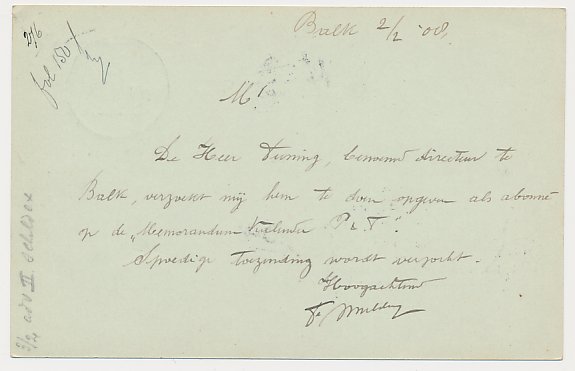 Balk 2/2 '08.
2/6
fol 150
Mr
De Heer Tuning, benoemd directeur te
Balk, verzoekt mij hem te doen opgeven als abonné
op de "Meemorandum Kalender P & T."
Spoedige toezending wordt verzocht.
Hoogachtend
Mulder
2/2 adv II